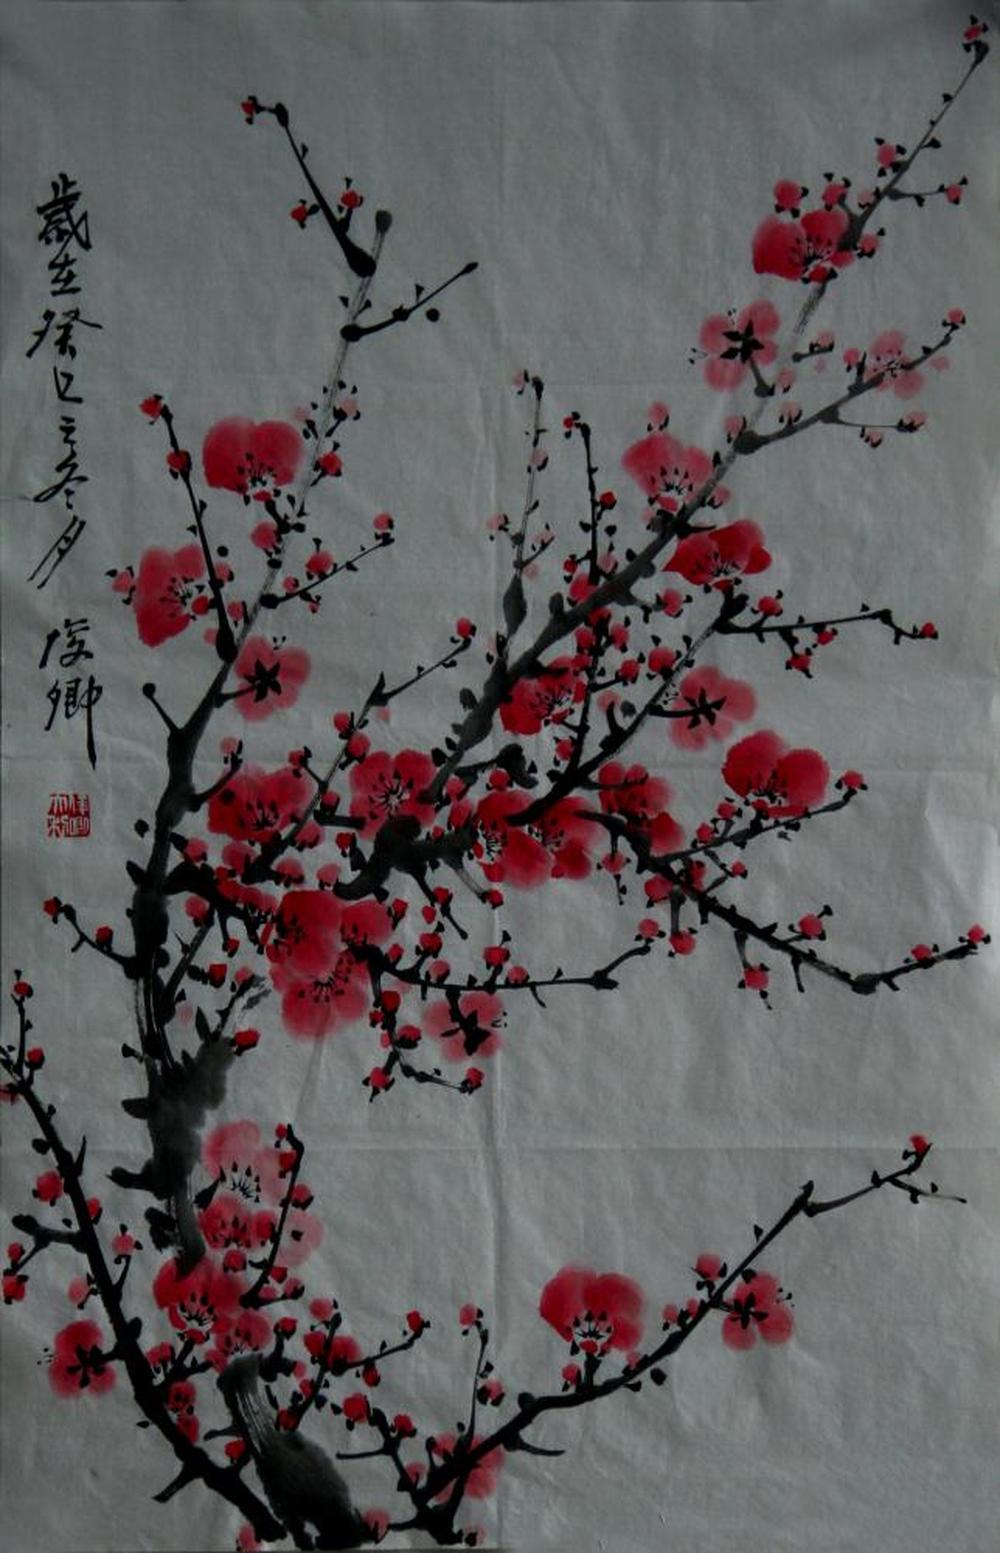 歲在癸巳之冬月
俊卿